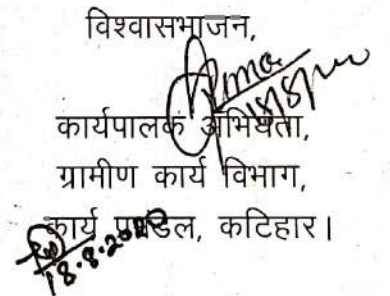 विश्वासभाजन,
कार्यपालक अभियंता,
ग्रामीण कार्य विभाग,
कार्य प्रमंडल, कटिहार।
18.8.2020